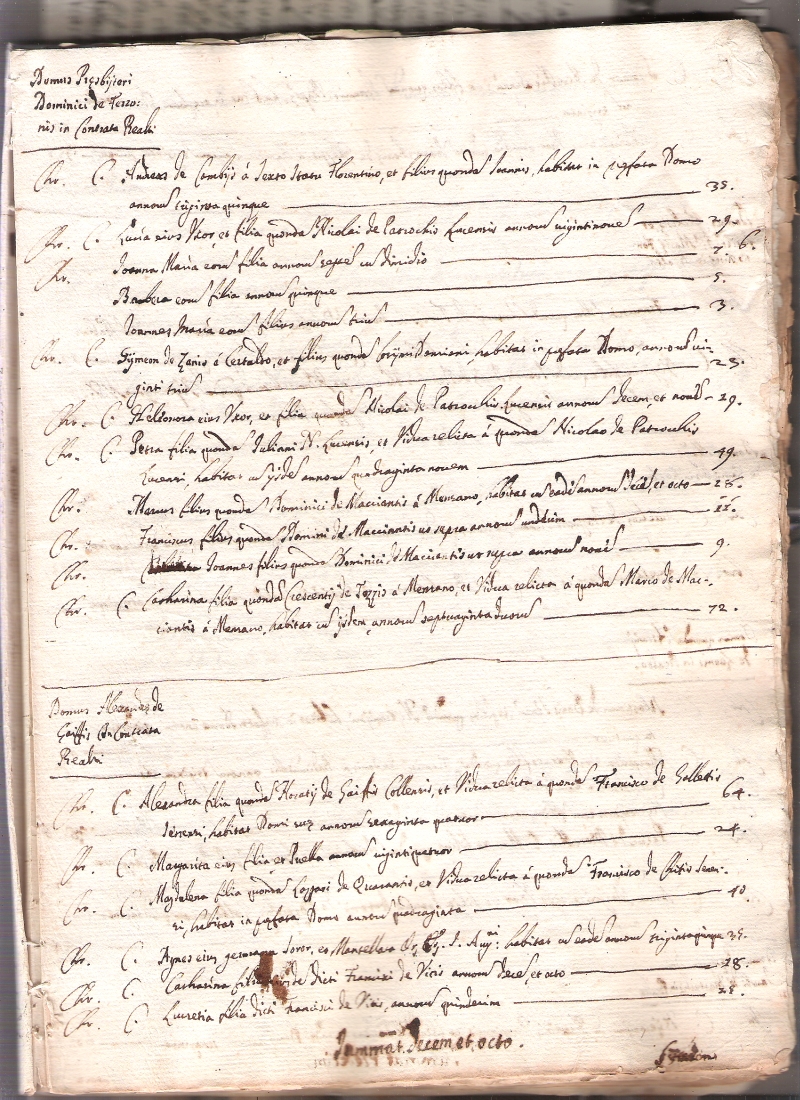 Domus Presbiteri
Dominici de Terzo:
nis in Contrata Realti
Chr. C. Andreas de Cambijs á Sexto Status Florentino, et filius quondã Ioannis, habitat in prefata Domo
annorũ triginta quinque 35.
Chr. C. Lucia eius Uxor, et filia quondã Nicolai de Patrochis Lucensis annorũ vigintinovẽ 29.
Chr. Ioanna Maria eorũ filia annorũ septẽ cũ dimidio 7. 6.
Barbera eorũ filia annorũ quinque 5.
Ioannes Maria eorũ filius annorũ triũ 3.
Chr. C. Symeon de Zanis á Certaldo, et filius quondã Damiani, habitat in prefata Domo, annorũ vi-
ginti triũ 23.
Chr. C. Heleonora eius Uxor, et filia quondã Nicolai de Patrochis Lucensis annorũ decem, et novẽ 19.
Chr. C. Petra filia quondã Iuliani N. Lucensis, et Vidua relicta á quondã Nicolao de Patrochis
Lucensi, habitat cũ ijsdẽ annorũ quadraginta novem 49.
Chr. Marcus filius quondã Dominici de Macciantis á Mensano, habitat cũ eadẽ annorũ decẽ, et octo 18.
Chr. Franciscus filius quondã Dominici de Macciantis ut supra annorũ undecim 11.
Chr. Ioannes filius quondã Dominici de Macciantis ut supra annorũ novẽ 9.
Chr. C. Catharina filia quondã Crescentij de Tozzis á Mensano, et Vidua relicta á quondã Marco de Mac-
ciantis á Mensano, habitat cũ ijsdem, annorũ septuaginta duorũ 72.
Domus Alexandrę de
Gaiffis in Contrata
Realti
Chr. C. Alexandra filia quondã Horatij de Gaiffis Collensis, et Vidua relicta á quondã Francisco de Gallettis
Senensi, habitat Domi suę annorũ sexaginta quatuor 64.
Chr. C. Margarita eius filia et Puella annorũ viginti quatuor 24.
Chr. C. Magdalena filia quondã Gaspari de Quarantis, et Vidua relicta á quondã Francisco de Senen-
si, habitat in prefata Domo annorũ quadraginta 40.
Chr. C. Agnes eius germana Soror, et Mantellata S. Augni: habitat cũ eadẽ annorũ triginta quinque 35.
Chr. C. Catharina filia dicti Francisci de annorũ decẽ, et octo 18.
Chr. C. Lucretia filia dicti Francisci de annorũ quindecim 15.
Summat. decem et octo.